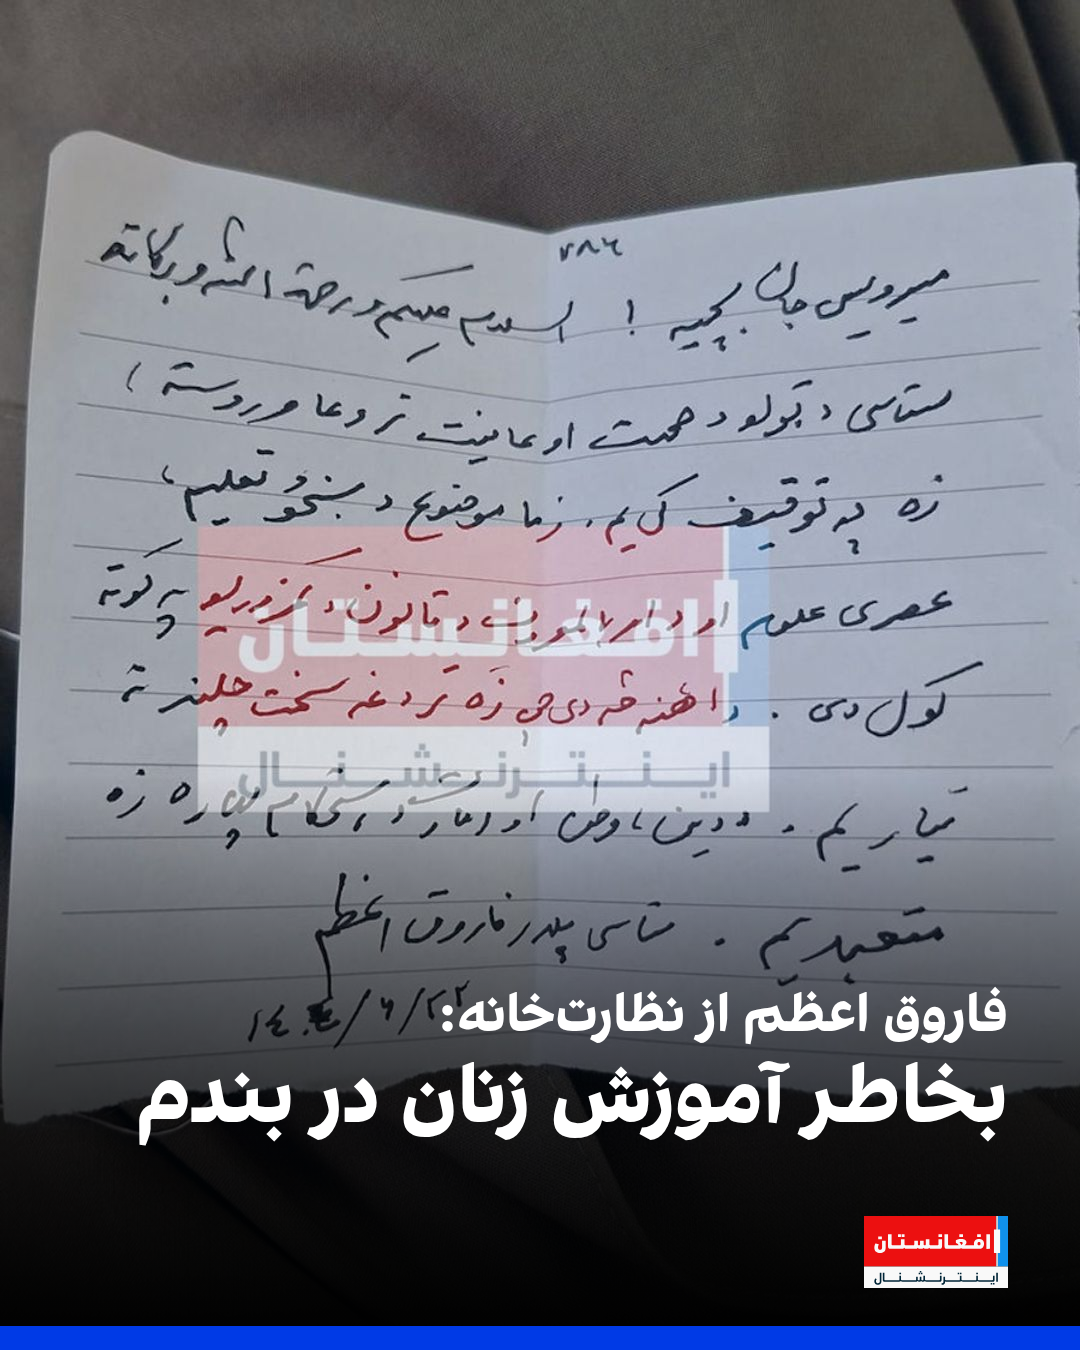 ۷۸۶
میرویس جان بچیه ! السلام علیکم ورحمة الله وبرکاته
ستاسی د ټولو د صحت او عافیت تر دعا وروسته ،
زه په توقیف کی یم . زما موضوع د ښځو تعلیم ،
عصری علوم او د امر بالمعروف د قانون د کمزوریو په ګوته
کول دی . دا هغه څه دی چې زه تر دغه سخت چلند ته
تیار یم . د دین ، وطن او د استحکام لپاره زه
متعهد یم . ستاسی پلار فاروق اعظم
۱۴۰۴/۶/۲۲
افغانستان
اینترنشنال
فاروق اعظم از نظارت‌خانه:
بخاطر آموزش زنان در بندم
افغانستان
اینترنشنال